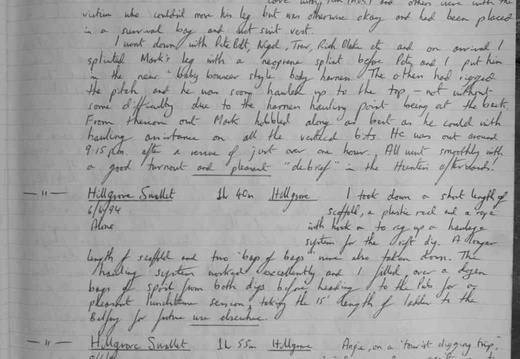 and others were with the
victim who couldn't move his leg but was otherwise okay and had been placed
in a survival bag and hot suit vest.
I went down with Pete Bolt, Nigel, Trev, Rich Blake etc and on arrival I
splinted Mark's leg with a neoprene splint before Pete and I put him
in the new 'baby bouncer' style body harness. The others had rigged
the pitch and he was soon hauled up to the top, - not without
some difficulty due to the harness hauling point being at the back.
From thereon out Mark hobbled along as best as he could with
hauling assistance on all the vertical bits. He was out around
9.15 p.m. after a rescue of just over one hour. All went smoothly with
a good turnout and pleasant "debrief" in the Hunters afterwards.
— " — Hillgrove Swallet 1h 40m Hillgrove I took down a short length of
6/4/94 scaffold, a plastic reel and a rope
Alone with hook on to rig up a haulage
system for the soft dig. A longer
length of scaffold and two 'bag of bags' were also taken down. The
hauling system worked excellently and I filled over a dozen
bags of spoil from both digs before heading to the Pub for a
pleasant lunchtime session, taking the 15' length of ladder to the
Belfry for future use elsewhere.
— " — Hillgrove Swallet 1h 55m Hillgrove Again, on a 'tourist digging trip',